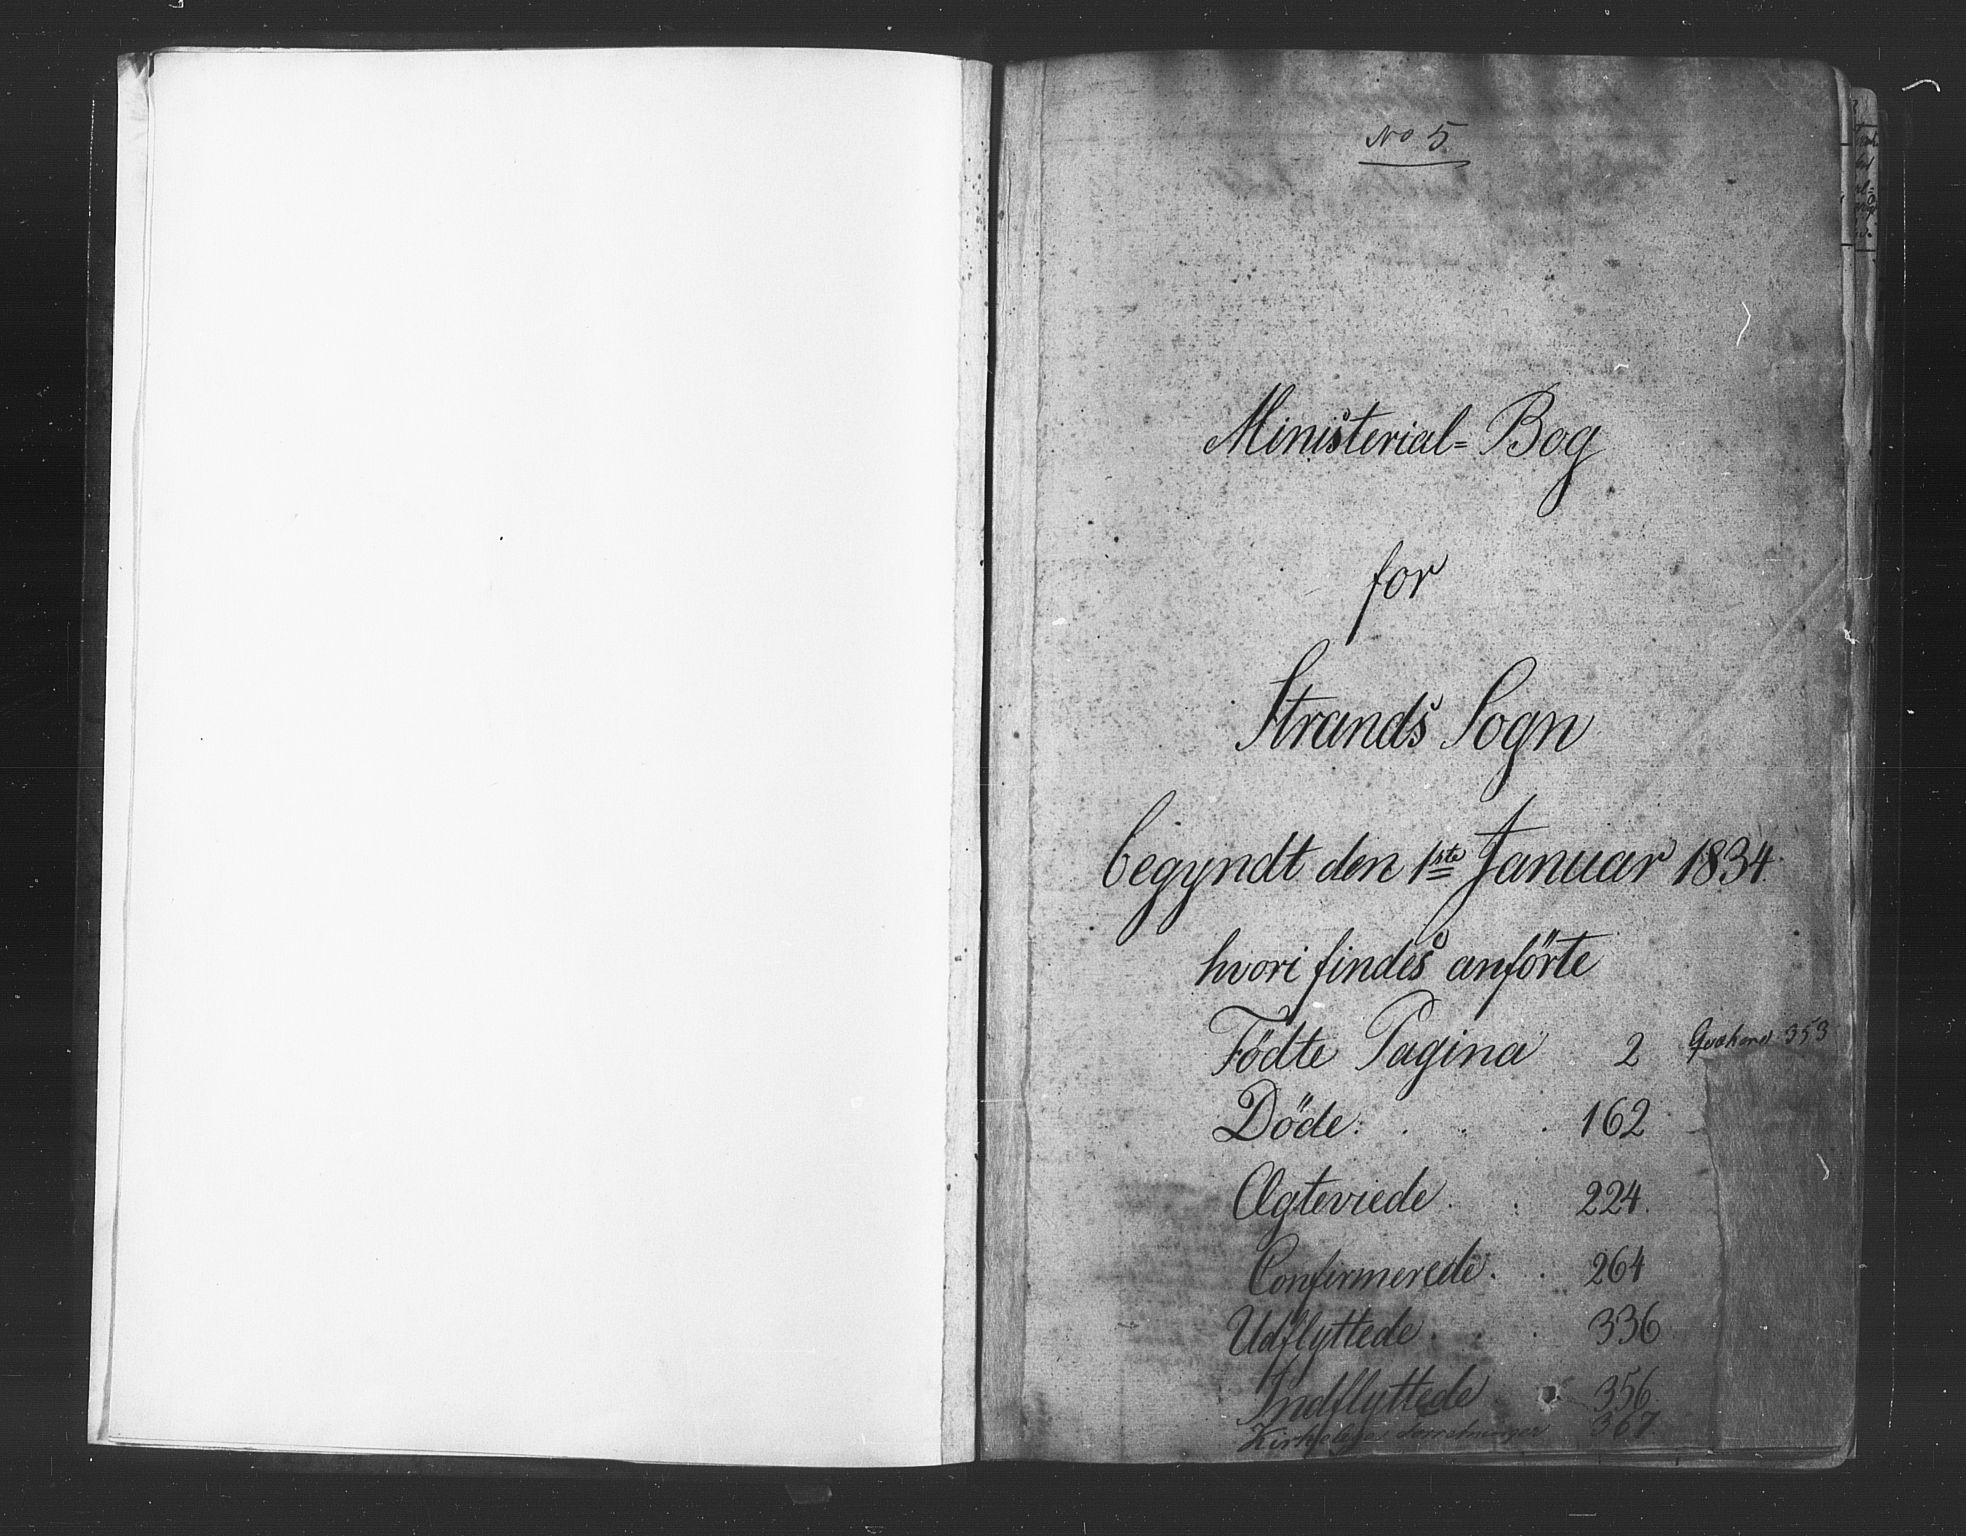 No 5
Ministerial= Bog
for
Strands Sogn
begyndt den 1ste Januar 1834.
hvori findes anførte
Födte Pagina 2 Qvækere 353
Döde . . . 162
Ægteviede . . 224.
Confirmerede . . 264
Udflyttede . . . 336
Indflyttede . . 356.
Kirkelige Forretninger 367.